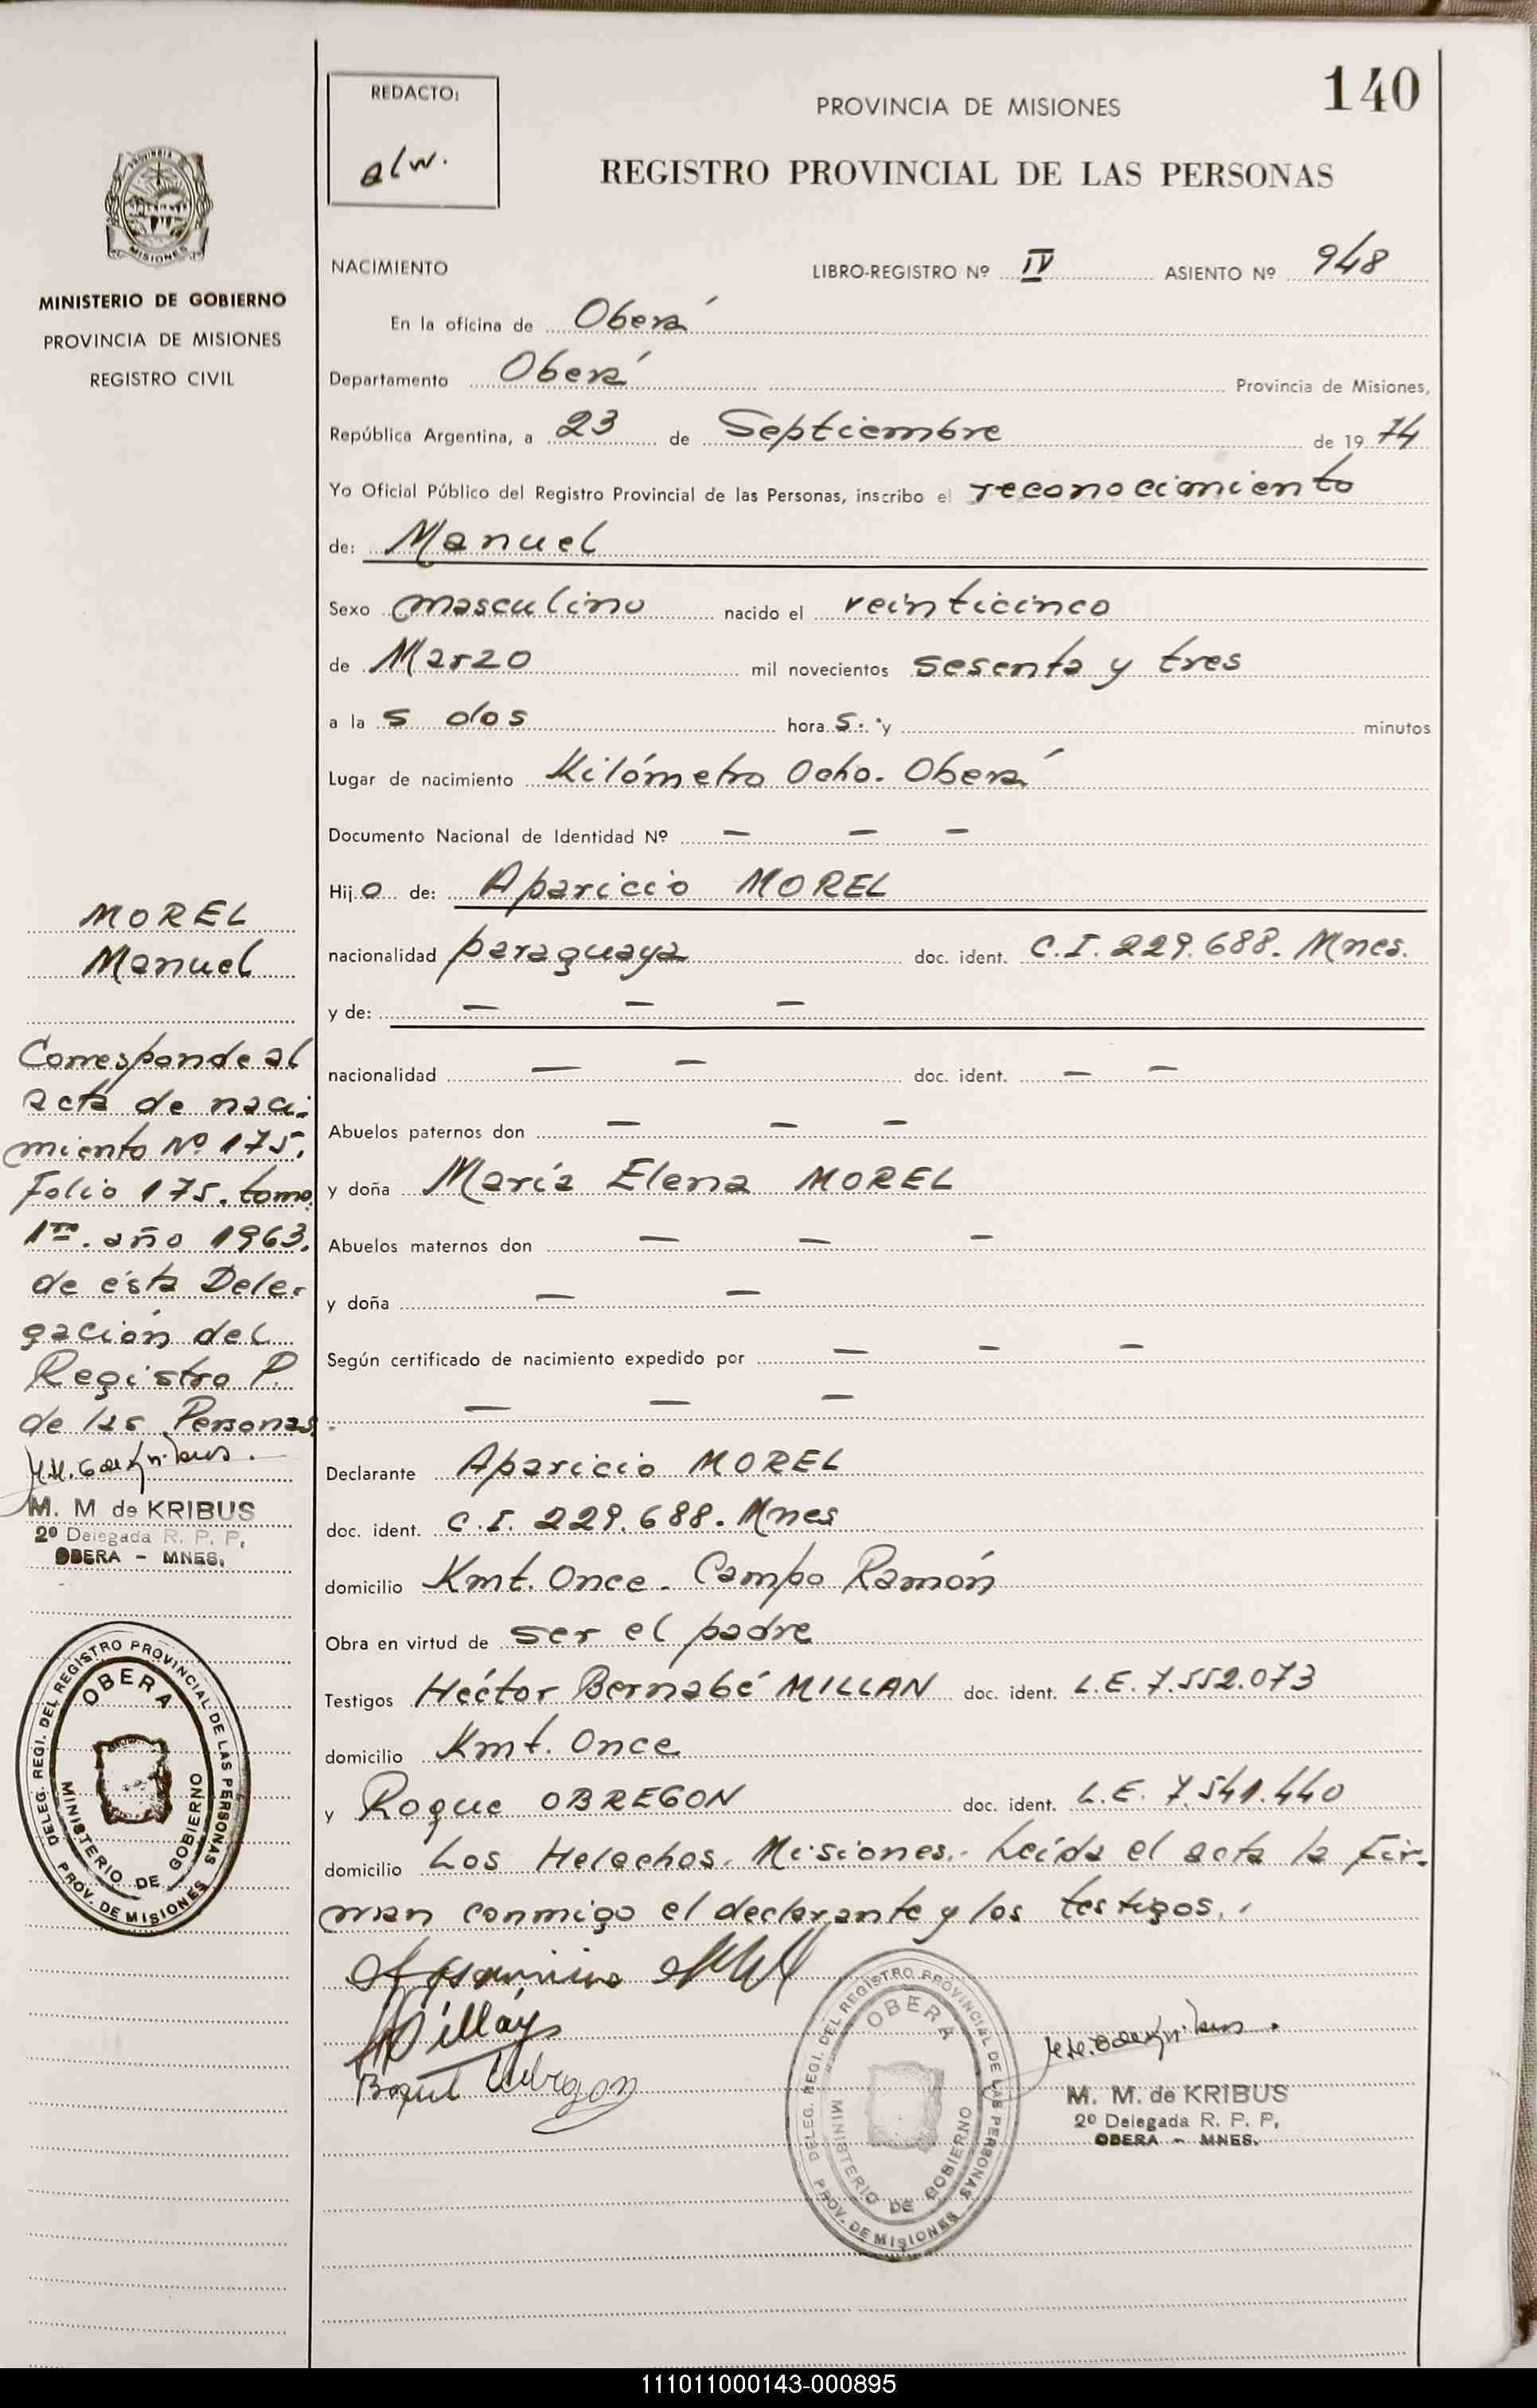 140
REDACTO:
alw.
PROVINCIA DE MISIONES
REGISTRO PROVINCIAL DE LAS PERSONAS
PROVINCIA DE
MISIONES
MINISTERIO DE GOBIERNO
PROVINCIA DE MISIONES
REGISTRO CIVIL
NACIMIENTO LIBRO-REGISTRO Nº IV ASIENTO Nº 948
En la oficina de Oberá
Departamento Oberá Provincia de Misiones,
República Argentina, a 23 de Septiembre de 1974
Yo Oficial Público del Registro Provincial de las Personas, inscribo el reconocimiento
de: Manuel
Sexo masculino nacido el veinticinco
de Marzo mil novecientos sesenta y tres
a las dos horas. y minutos
Lugar de nacimiento Kilómetro Ocho. Oberá
Documento Nacional de Identidad Nº — — —
Hijo de: Aparicio MOREL
nacionalidad paraguaya doc. ident. C.I. 229.688. Mnes.
y de: — — —
nacionalidad — — doc. ident. — —
Abuelos paternos don — — —
y doña María Elena MOREL
Abuelos maternos don — — —
y doña — —
Según certificado de nacimiento expedido por — — —
— — —
Declarante Aparicio MOREL
doc. ident. C.I. 229.688. Mnes
domicilio Kmt. Once. Campo Ramón
Obra en virtud de ser el padre
Testigos Héctor Bernabé MILLAN doc. ident. L.E. 7.552.073
domicilio Kmt. Once
y Roque OBREGON doc. ident. L.E. 7.541.440
domicilio Los Helechos. Misiones.- Leída el acta la fir-
man conmigo el declarante y los testigos.
Millán
Obregon
DELEG. REGI. DEL REGISTRO PROVINCIAL DE LAS PERSONAS
OBERA
MINISTERIO DE GOBIERNO
PROV. DE MISIONES
M. M. de KRIBUS
2º Delegada R. P. P.
OBERA - MNES.
MOREL
Manuel
Corresponde al
acta de naci-
miento Nº 175.
Folio 175. tomo
1ro. año 1963.
de ésta Dele-
gación del
Registro P.
de las Personas.
M. M. de KRIBUS
2º Delegada R. P. P.
OBERA - MNES.
DELEG. REGI. DEL REGISTRO PROVINCIAL DE LAS PERSONAS
OBERA
MINISTERIO DE GOBIERNO
PROV. DE MISIONES
111011000143-000895